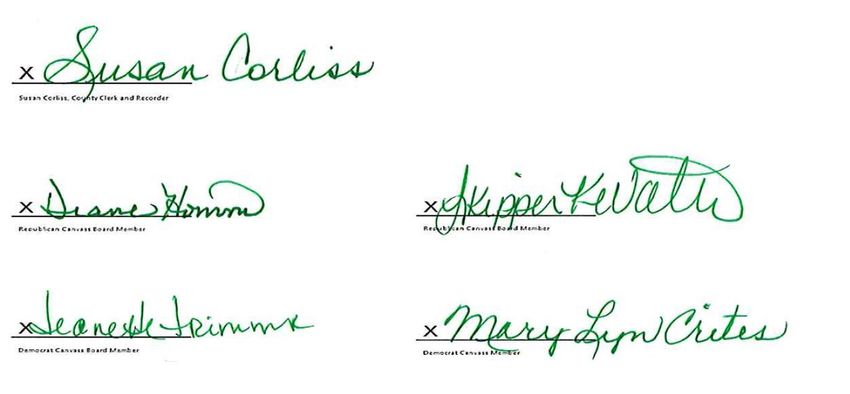 X Susan Corliss
Susan Corliss, County Clerk and Recorder
X Diane
Republican Canvass Board Member
X Skipper
Republican Canvass Board Member
X Jeanette
Democrat Canvass Board Member
X Mary Lyn Crites
Democrat Canvass Member